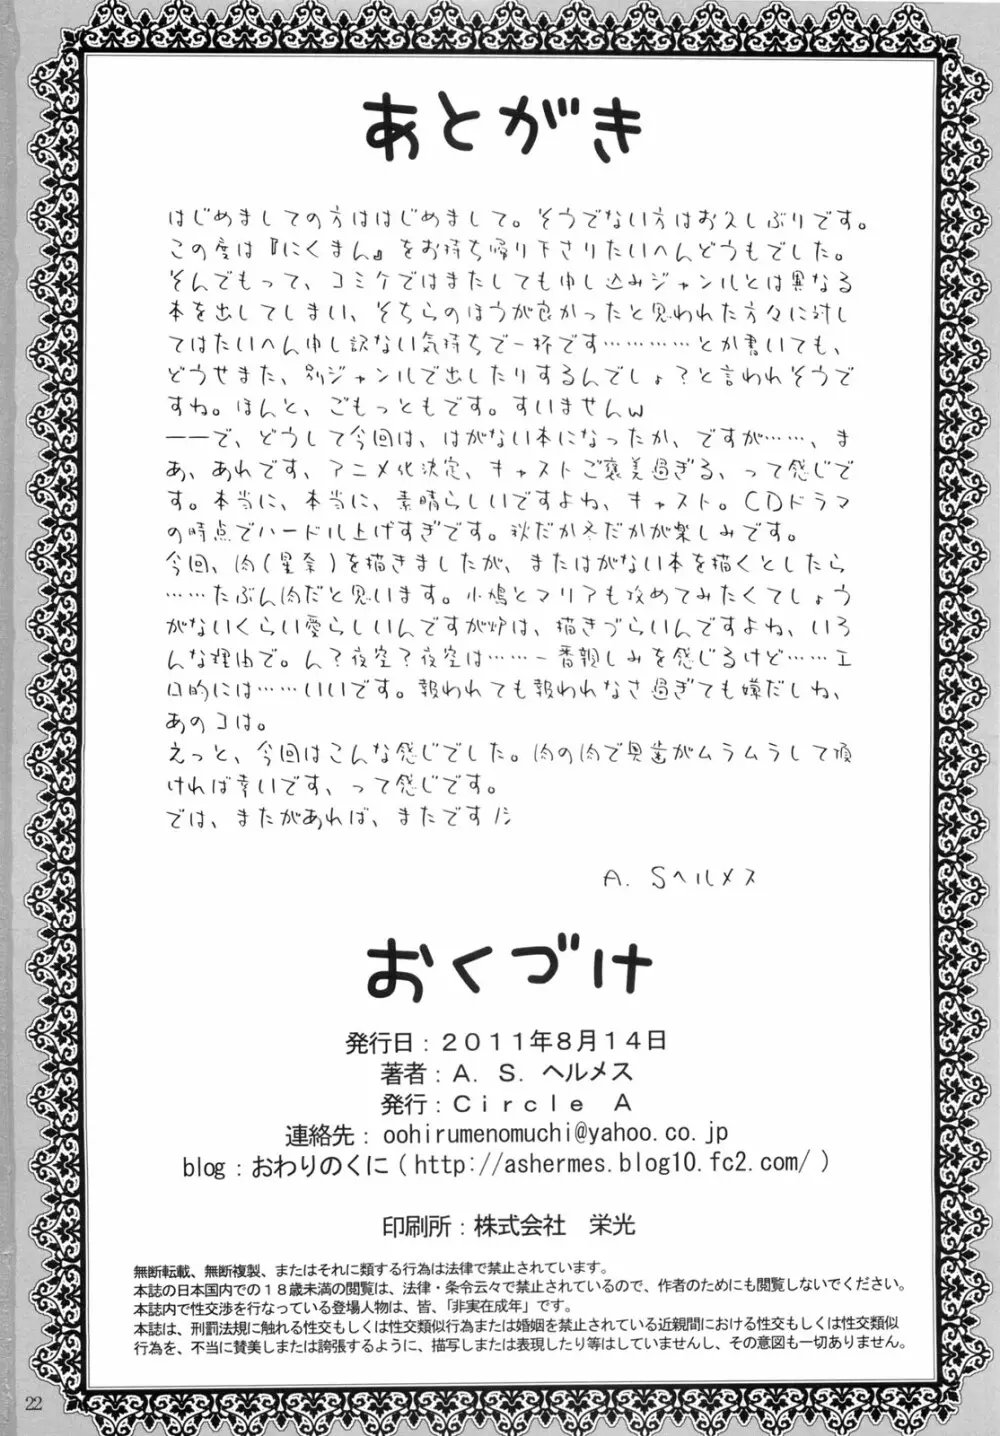 あとがき
はじめましての方ははじめまして。そうでない方はお久しぶりです。
この度は『にくまん』をお持ち帰り下さりたいへんどうもでした。
そんでもって、コミケではまたしても申し込みジャンルとは異なる
本を出してしまい、そちらのほうが良かったと思われた方々に対し
てはたいへん申し訳ない気持ちで一杯です…………とか書いても、
どうせまた、別ジャンルで出したりするんでしょ？と言われそうで
すね。ほんと、ごもっともです。すいませんw
――で、どうして今回は、はがない本になったか、ですが……、ま
あ、あれです、アニメ化決定、キャストご褒美過ぎる、って感じで
す。本当に、本当に、素晴らしいですよね、キャスト。CDドラマ
の時点でハードル上げすぎです。秋だか冬だかが楽しみです。
今回、肉(星奈)を描きましたが、またはがない本を描くとしたら
……たぶん肉だと思います。小鳩とマリアも攻めてみたくてしょう
がないくらい愛らしいんですが炉は、描きづらいんですよね、いろ
んな理由で。ん？夜空？夜空は……一番親しみを感じるけど……エ
ロ的には……いいです。報われても報われなさ過ぎても嫌だしね、
あのコは。
えっと、今回はこんな感じでした。肉の肉で奥歯がムラムラして頂
ければ幸いです、って感じです。
では、またがあれば、またですﾉｼ
A．Sヘルメス
おくづけ
発行日：２０１１年８月１４日
著者：Ａ．Ｓ．ヘルメス
発行：Ｃｉｒｃｌｅ　Ａ
連絡先：oohirumenomuchi@yahoo.co.jp
blog：おわりのくに(http://ashermes.blog10.fc2.com/)
印刷所：株式会社　栄光
無断転載、無断複製、またはそれに類する行為は法律で禁止されています。
本誌の日本国内での１８歳未満の閲覧は、法律・条令云々で禁止されているので、作者のためにも閲覧しないでください。
本誌内で性交渉を行なっている登場人物は、皆、「非実在成年」です。
本誌は、刑罰法規に触れる性交もしくは性交類似行為または婚姻を禁止されている近親間における性交もしくは性交類似
行為を、不当に賛美しまたは誇張するように、描写しまたは表現したり等はしていませんし、その意図も一切ありません。
22